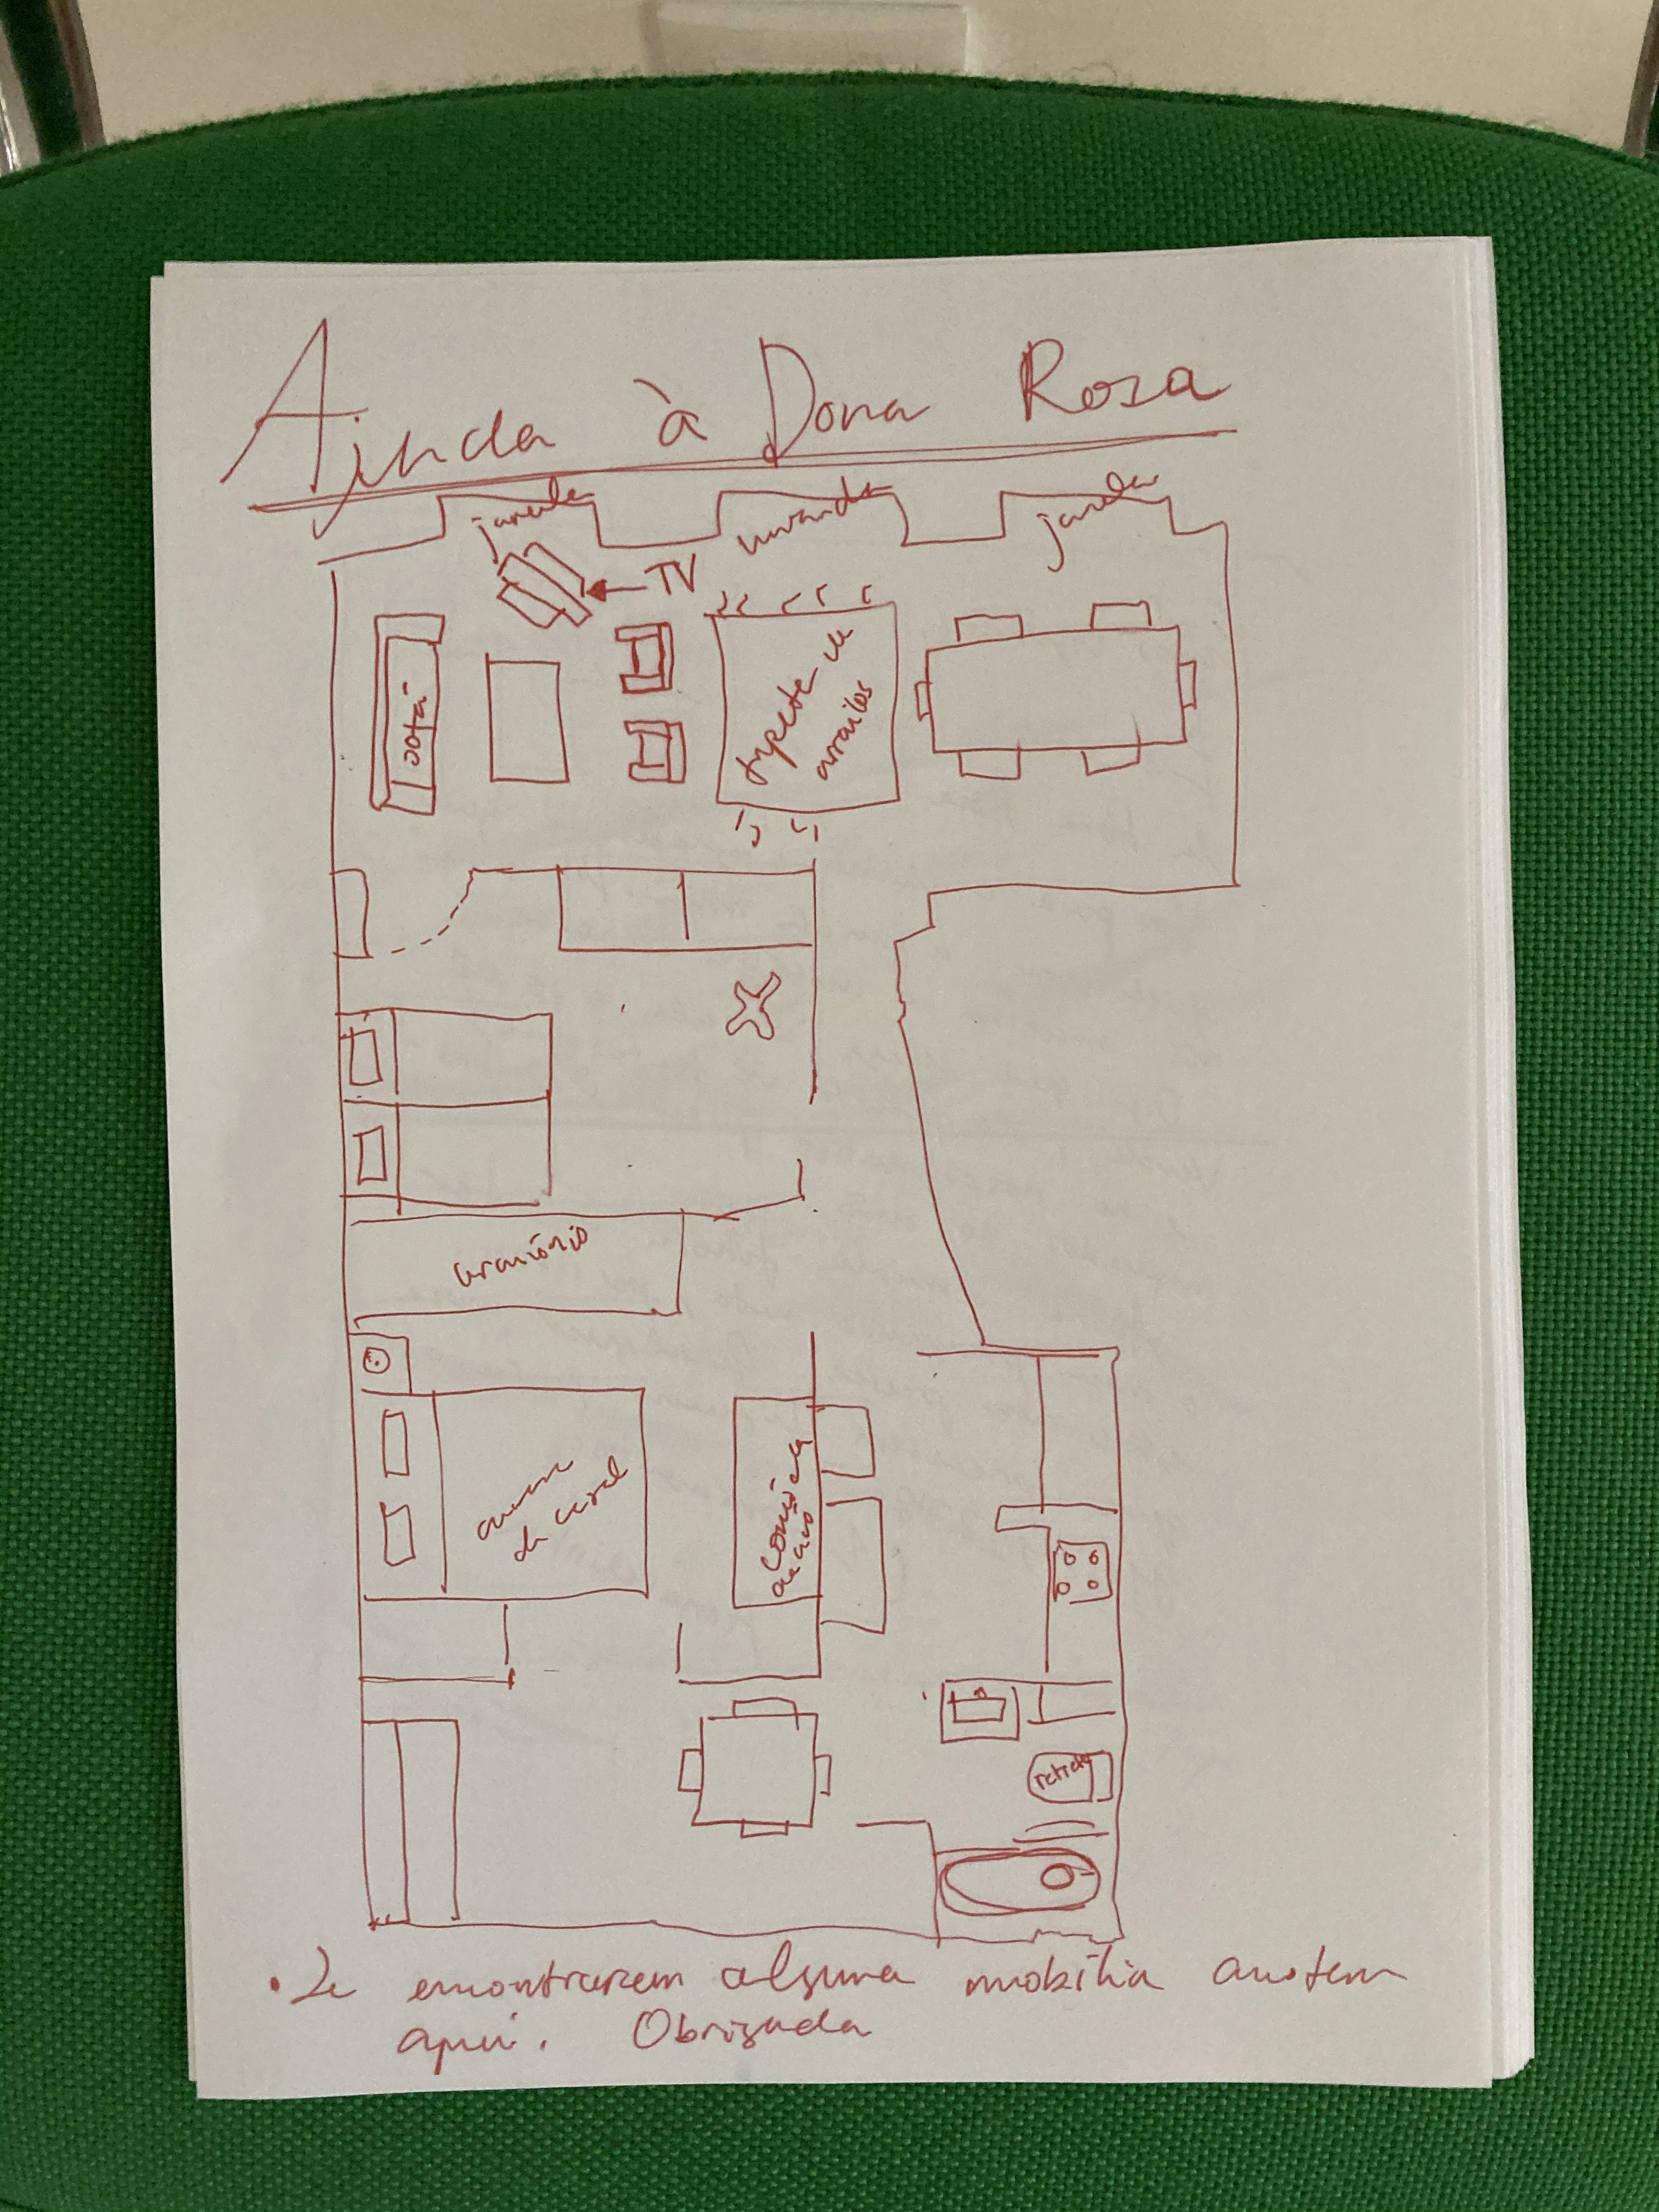 Ajuda à Dona Rosa
janela
varanda
janela
TV
sofá
tapete de
arraiolos
armário
cama
de casal
cómoda
retrete
• Se encontrarem alguma mobília anotem
aqui. Obrigada